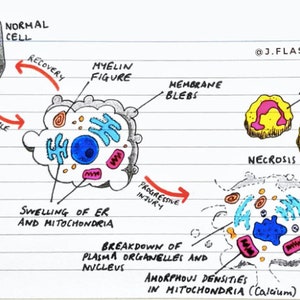 NORMAL
CELL
@J.FLAS
RECOVERY
MYELIN
FIGURE
MEMBRANE
BLEBS
NECROSIS
PROGRESSIVE
INJURY
SWELLING OF ER
AND MITOCHONDRIA
BREAKDOWN OF
PLASMA ORGANELLES AND
NUCLEUS
AMORPHOUS DENSITIES
IN MITOCHONDRIA (Calcium)